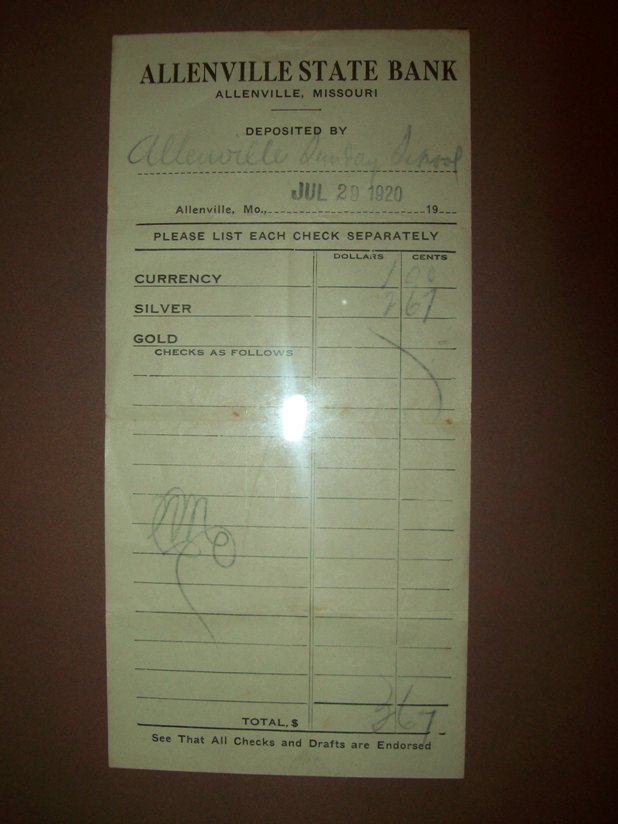 ALLENVILLE STATE BANK
ALLENVILLE, MISSOURI
DEPOSITED BY
Allenville Sunday School
JUL 29 1920
Allenville, Mo., 19
PLEASE LIST EACH CHECK SEPARATELY
DOLLARS CENTS
CURRENCY 1 00
SILVER 2 67
GOLD
CHECKS AS FOLLOWS
TOTAL, $ 3 67
See That All Checks and Drafts are Endorsed